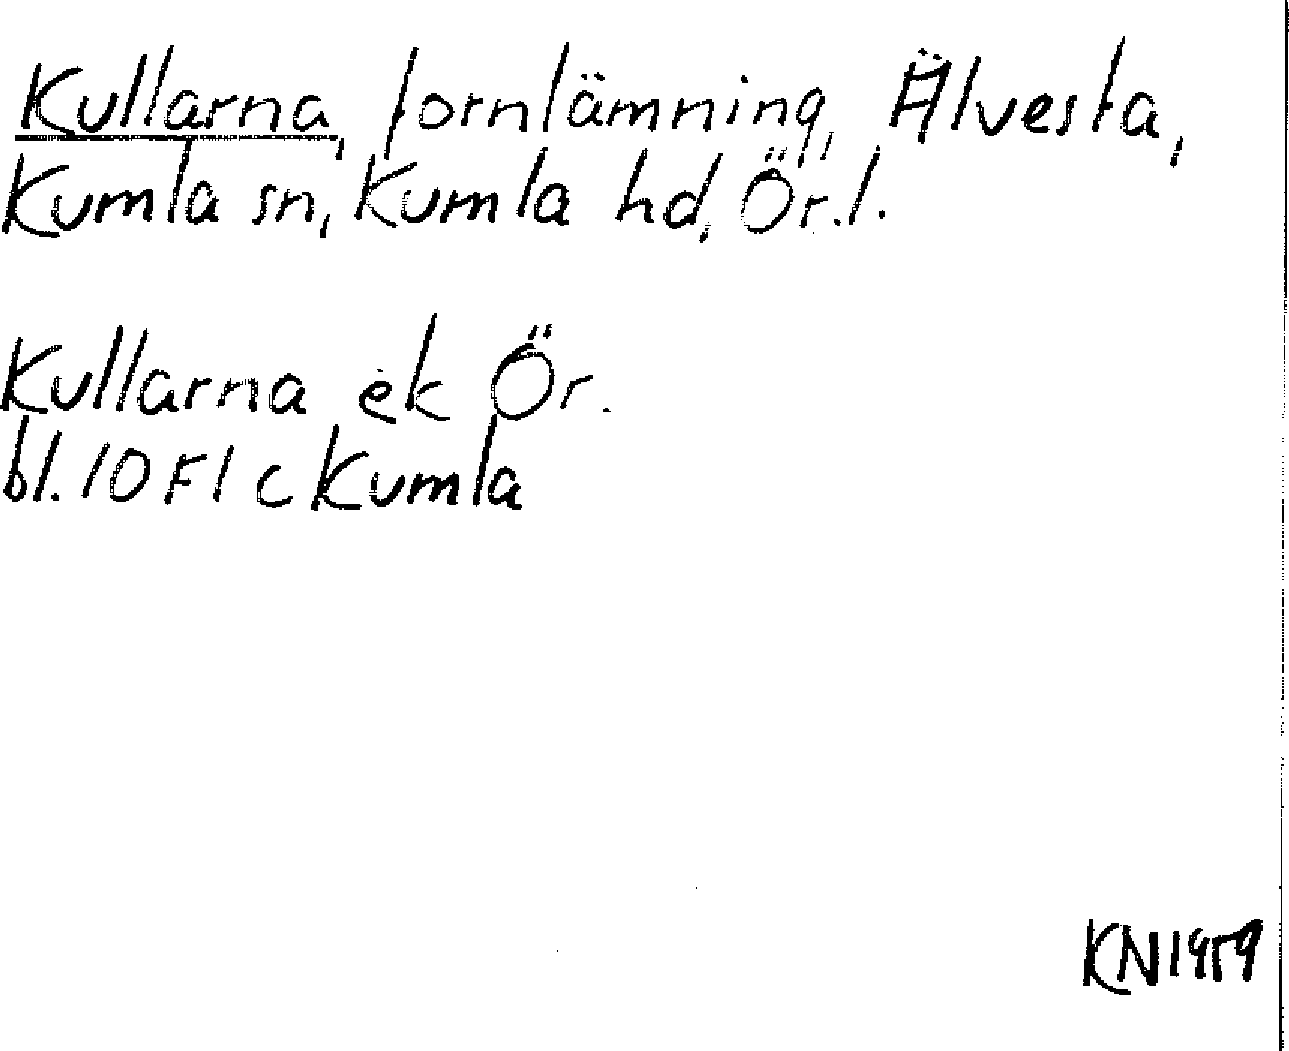 Kullarna, fornlämning, Älvesta,
Kumla sn, Kumla hd, Ör.l.
Kullarna ek Ör.
bl. 10F1c Kumla
KN1959